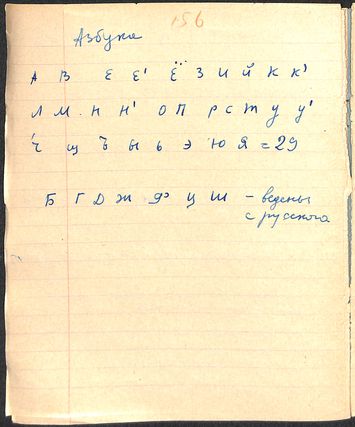 156
Азбука
А В Е Е' Ё З И Й К К'
Л М Н Н' О П Р С Т У У'
Ч Щ Ъ Ы Ь Э Ю Я = 29
Б Г Д Ж Ф Ц Ш – ведены
с русского